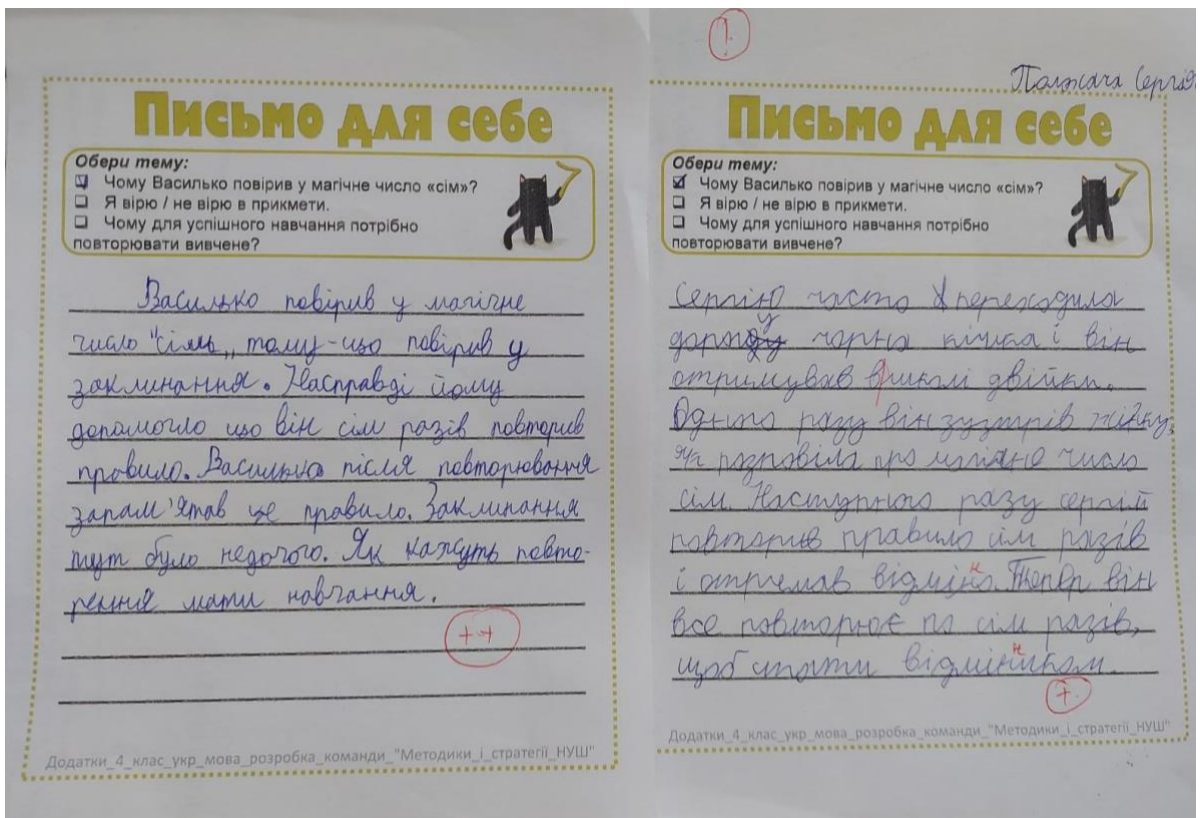 Письмо для себе
Обери тему:
Чому Василько повірив у магічне число «сім»?
Я вірю / не вірю в прикмети.
Чому для успішного навчання потрібно
повторювати вивчене?
Василько повірив у магічне
число "сім„ тому-що повірив у
заклинання. Насправді йому
допомогло що він сім разів повторив
правило. Василько після повторювання
запам'ятав це правило. Заклинання
тут було недочого. Як кажуть повто-
рення мати навчання.
++
Додатки_4_клас_укр_мова_розробка_команди_"Методики_і_стратегії_НУШ"
!
Сергія
Письмо для себе
Обери тему:
Чому Василько повірив у магічне число «сім»?
Я вірю / не вірю в прикмети.
Чому для успішного навчання потрібно
повторювати вивчене?
Сергію часто переходила
дорогу чорна кішка і він
отримував в школі двійки.
Одного разу він зузтрів жінку,
як розповіла про магічне число
сім. Наступного разу сергій
повторив правило сім разів
і отремав відмінно. Тепер він
все повторює по сім разів,
щоб стати відмінником.
+
Додатки_4_клас_укр_мова_розробка_команди_"Методики_і_стратегії_НУШ"